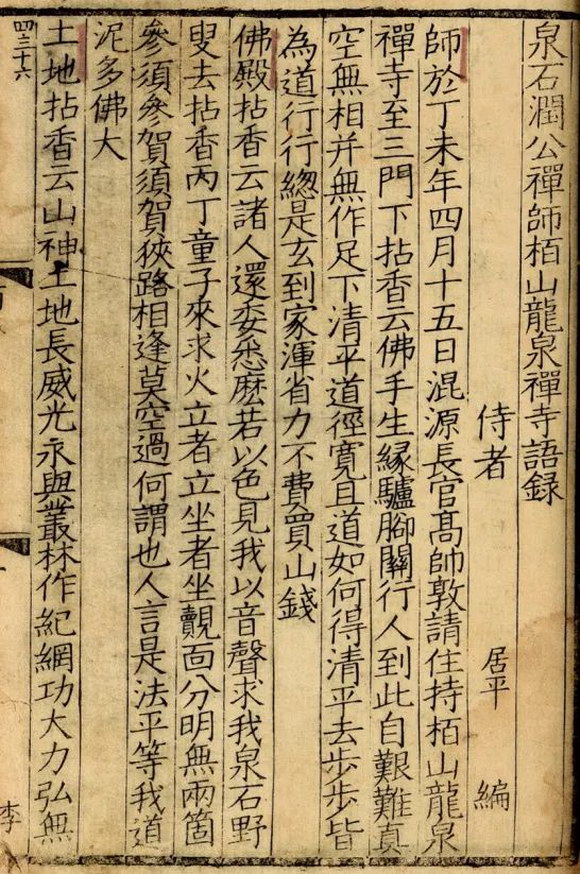 泉石潤公禪師栢山龍泉禪寺語録
侍者 居平 編
師於丁未年四月十五日混源長官髙帥敦請住持栢山龍泉
禪寺至三門下拈香云佛手生緣驢脚關行人到此自艱難真
空無相并無作足下清平道徑寬且道如何得清平去步步皆
為道行行總是玄到家渾省力不費買山錢
佛殿拈香云諸人還委悉麽若以色見我以音聲求我泉石野
叟去拈香丙丁童子來求火立者立坐者坐覿面分明無兩箇
參須參賀須賀狹路相逢莫空過何謂也人言是法平等我道
泥多佛大
土地拈香云山神土地長威光永與叢林作紀綱功大力弘無
四三十六
李